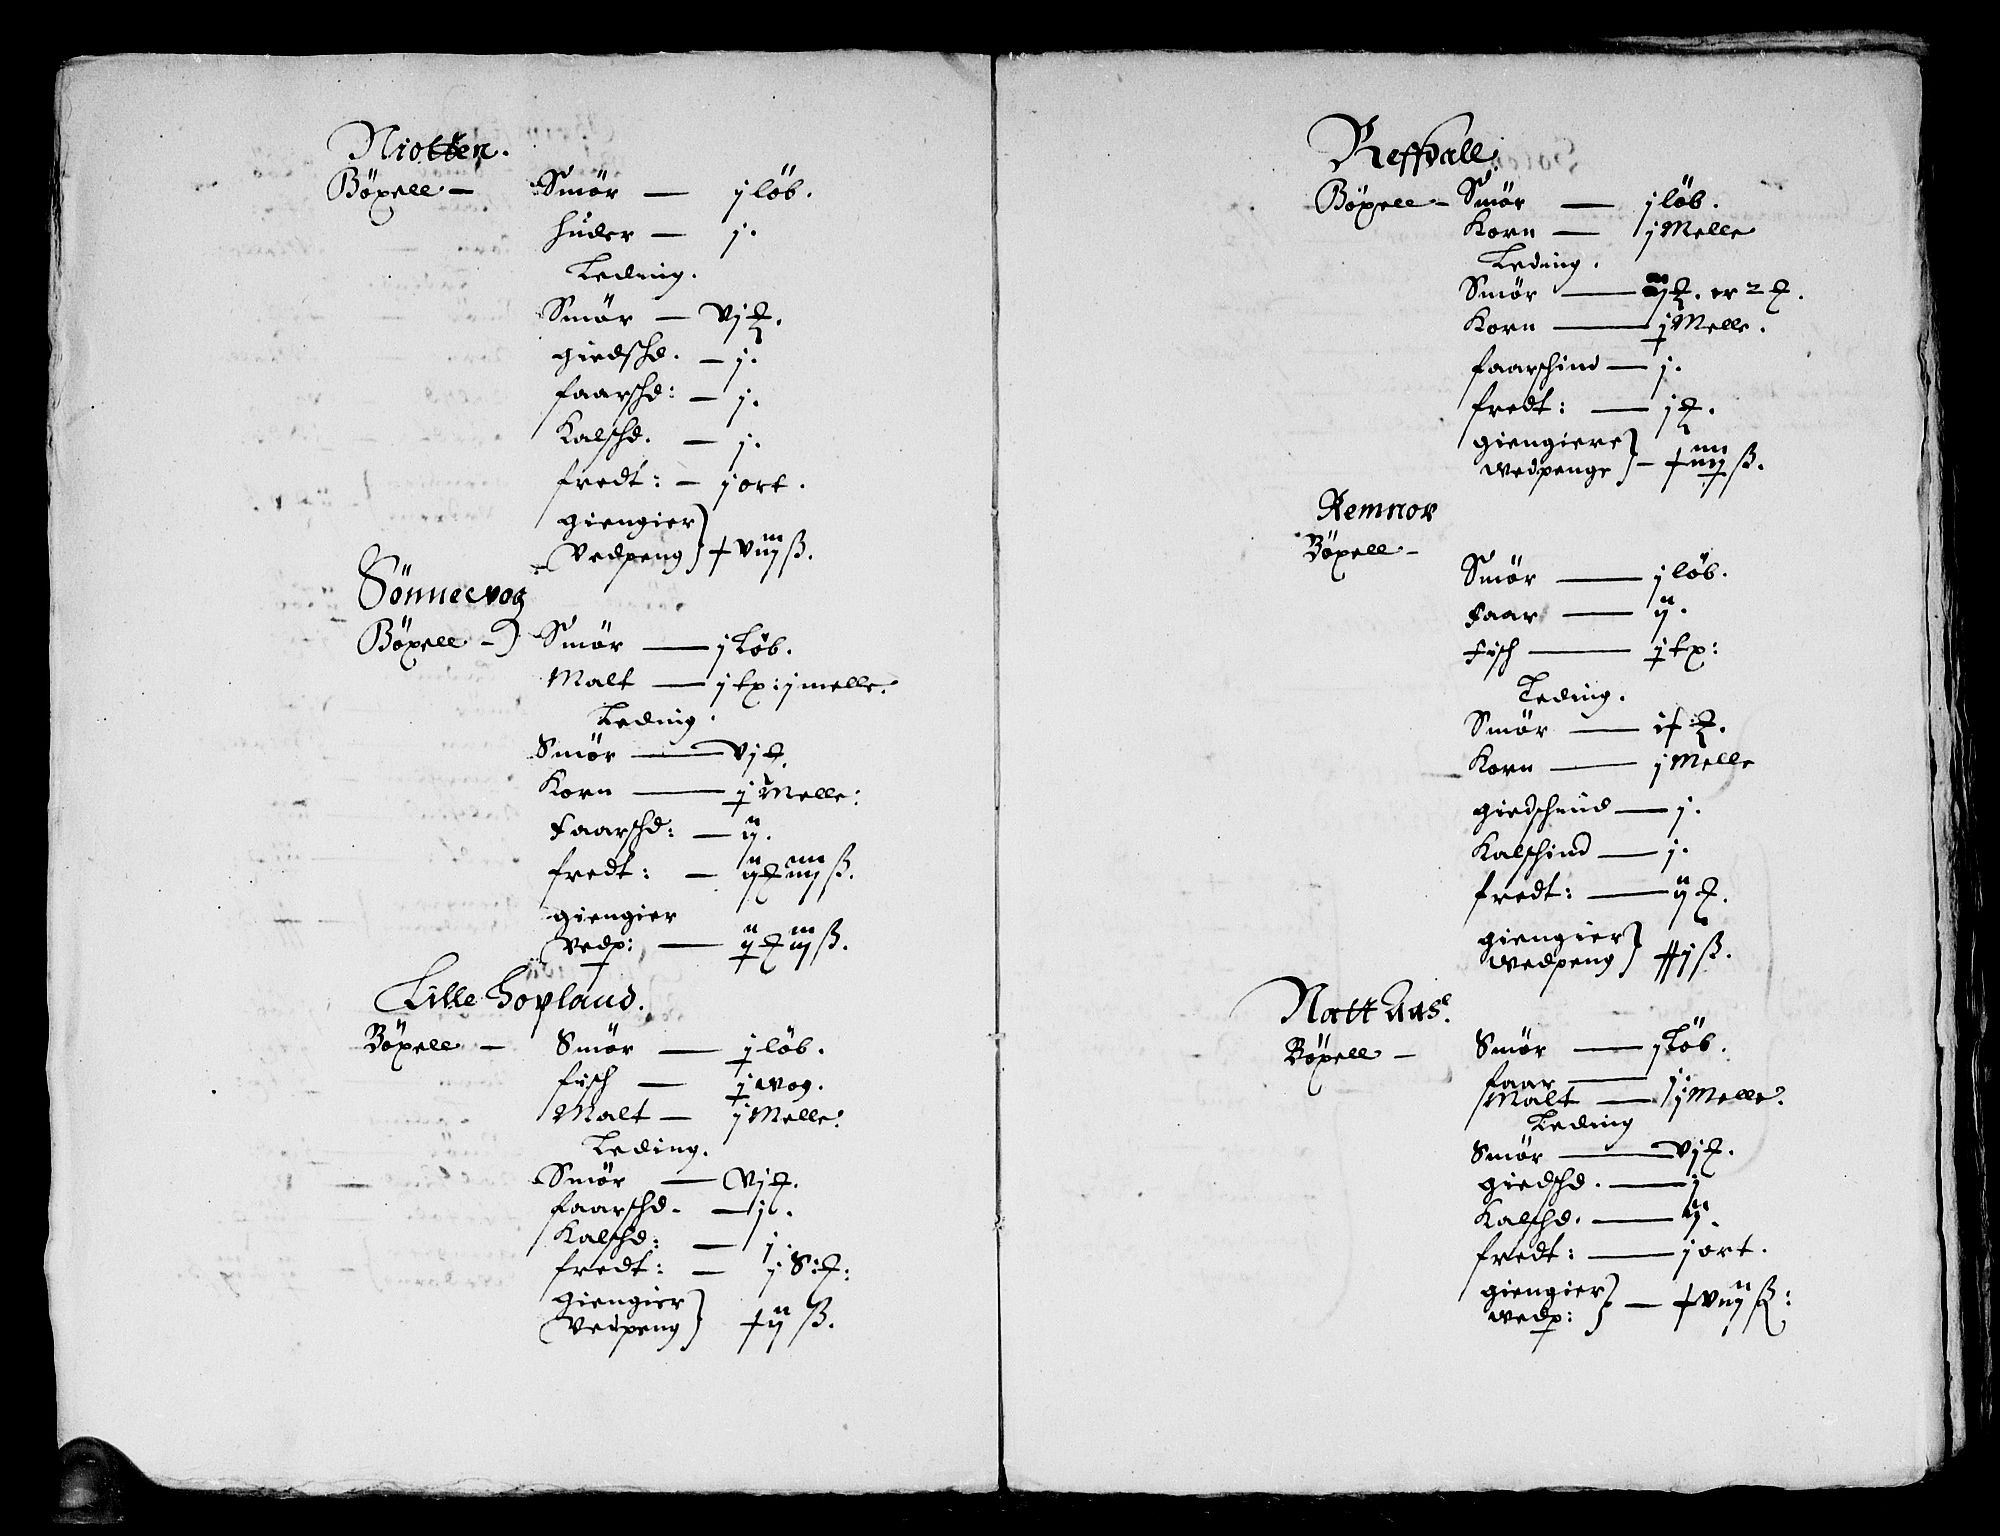 Niotten.
Böxell - Smör - j löb.
huder - j.
Leding.
Smör - vj ℔.
giedschd. - j.
faarschd: - j.
Kalschd. - j.
fredt: - j ort.
giengier
Vedpeng } + viij ß.
Sönnevog
Böxell - Smör - j Löb.
Malt - j tp: j melle.
Leding.
Smör - vj ℔.
Korn - j Melle:
Faarschd: - ij.
fredt: - ij ℔ iiij ß.
giengier
Vedp: - ij ℔ iij ß.
Lille Hopland.
Böxell - Smör - j löb.
fisch - j wog.
Malt - j Melle:
Leding.
Smör - vj ℔.
faarschd. - j.
Kalschd: - j
fredt: - j S: ℔:
giengier
Vedpeng } + ij ß.
Reffdall
Böxell - Smör - j löb.
Korn - j Melle
Leding.
Smör - ℔. er 2 ℔.
Korn - j Melle.
faarschind - j.
fredt: - j ℔.
giengiere
wedpenge } - + iiij ß.
Remnor
Böxell -
Smör - j löb.
Faar - ij.
Fisch - j tp:
Leding.
Smör - ℔.
Korn - j Melle
giedschind - j.
Kalschind - j.
fredt: - ij ℔.
giengier
wedpeng } j ß.
Natt Aas.
Böxell - Smör - j Löb.
faar - j
Malt - j Melle.
Leding
Smör - vj ℔.
giedschd. - j
Kalschd. - ij.
fredt: - j ort.
giengier
wedp: } - + viij ß: